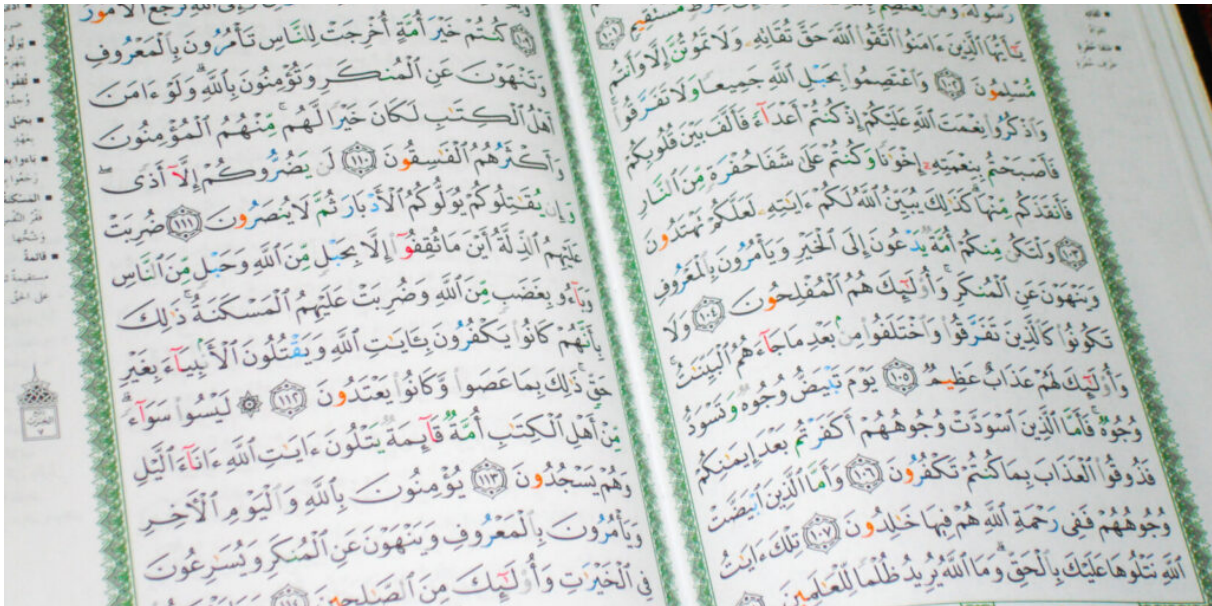 رَسُولُهُۥ وَمَن يَعْتَصِم مُّسْتَقِيمٍ ١٠١
يَٰٓأَيُّهَا ٱلَّذِينَ ءَامَنُوا۟ ٱتَّقُوا۟ ٱللَّهَ حَقَّ تُقَاتِهِۦ وَلَا تَمُوتُنَّ إِلَّا وَأَنتُم
مُّسْلِمُونَ ١٠٢ وَٱعْتَصِمُوا۟ بِحَبْلِ ٱللَّهِ جَمِيعًا وَلَا تَفَرَّقُوا۟
وَٱذْكُرُوا۟ نِعْمَتَ ٱللَّهِ عَلَيْكُمْ إِذْ كُنتُمْ أَعْدَآءً فَأَلَّفَ بَيْنَ قُلُوبِكُمْ
فَأَصْبَحْتُم بِنِعْمَتِهِۦٓ إِخْوَٰنًا وَكُنتُمْ عَلَىٰ شَفَا حُفْرَةٍ مِّنَ ٱلنَّارِ
فَأَنقَذَكُم مِّنْهَا ۗ كَذَٰلِكَ يُبَيِّنُ ٱللَّهُ لَكُمْ ءَايَٰتِهِۦ لَعَلَّكُمْ تَهْتَدُونَ
١٠٣ وَلْتَكُن مِّنكُمْ أُمَّةٌ يَدْعُونَ إِلَى ٱلْخَيْرِ وَيَأْمُرُونَ بِٱلْمَعْرُوفِ
وَيَنْهَوْنَ عَنِ ٱلْمُنكَرِ ۚ وَأُو۟لَٰٓئِكَ هُمُ ٱلْمُفْلِحُونَ ١٠٤ وَلَا
تَكُونُوا۟ كَٱلَّذِينَ تَفَرَّقُوا۟ وَٱخْتَلَفُوا۟ مِنۢ بَعْدِ مَا جَآءَهُمُ ٱلْبَيِّنَٰتُ ۚ
وَأُو۟لَٰٓئِكَ لَهُمْ عَذَابٌ عَظِيمٌ ١٠٥ يَوْمَ تَبْيَضُّ وُجُوهٌ وَتَسْوَدُّ
وُجُوهٌ ۚ فَأَمَّا ٱلَّذِينَ ٱسْوَدَّتْ وُجُوهُهُمْ أَكَفَرْتُم بَعْدَ إِيمَٰنِكُمْ
فَذُوقُوا۟ ٱلْعَذَابَ بِمَا كُنتُمْ تَكْفُرُونَ ١٠٦ وَأَمَّا ٱلَّذِينَ ٱبْيَضَّتْ
وُجُوهُهُمْ فَفِى رَحْمَةِ ٱللَّهِ هُمْ فِيهَا خَٰلِدُونَ ١٠٧ تِلْكَ ءَايَٰتُ
ٱللَّهِ نَتْلُوهَا عَلَيْكَ بِٱلْحَقِّ ۗ وَمَا ٱللَّهُ يُرِيدُ ظُلْمًا لِّلْعَٰلَمِينَ
تُرْجَعُ ٱلْأُمُورُ
١٠٩ كُنتُمْ خَيْرَ أُمَّةٍ أُخْرِجَتْ لِلنَّاسِ تَأْمُرُونَ بِٱلْمَعْرُوفِ
وَتَنْهَوْنَ عَنِ ٱلْمُنكَرِ وَتُؤْمِنُونَ بِٱللَّهِ ۗ وَلَوْ ءَامَنَ
أَهْلُ ٱلْكِتَٰبِ لَكَانَ خَيْرًا لَّهُم ۚ مِّنْهُمُ ٱلْمُؤْمِنُونَ
وَأَكْثَرُهُمُ ٱلْفَٰسِقُونَ ١١٠ لَن يَضُرُّوكُمْ إِلَّآ أَذًى ۖ
وَإِن يُقَٰتِلُوكُمْ يُوَلُّوكُمُ ٱلْأَدْبَارَ ثُمَّ لَا يُنصَرُونَ ١١١ ضُرِبَتْ
عَلَيْهِمُ ٱلذِّلَّةُ أَيْنَ مَا ثُقِفُوٓا۟ إِلَّا بِحَبْلٍ مِّنَ ٱللَّهِ وَحَبْلٍ مِّنَ ٱلنَّاسِ
وَبَآءُو بِغَضَبٍ مِّنَ ٱللَّهِ وَضُرِبَتْ عَلَيْهِمُ ٱلْمَسْكَنَةُ ۚ ذَٰلِكَ
بِأَنَّهُمْ كَانُوا۟ يَكْفُرُونَ بِـَٔايَٰتِ ٱللَّهِ وَيَقْتُلُونَ ٱلْأَنۢبِيَآءَ بِغَيْرِ
حَقٍّ ۚ ذَٰلِكَ بِمَا عَصَوا۟ وَّكَانُوا۟ يَعْتَدُونَ ١١٢ ۞ لَيْسُوا۟ سَوَآءً ۗ
مِّنْ أَهْلِ ٱلْكِتَٰبِ أُمَّةٌ قَآئِمَةٌ يَتْلُونَ ءَايَٰتِ ٱللَّهِ ءَانَآءَ ٱلَّيْلِ
وَهُمْ يَسْجُدُونَ ١١٣ يُؤْمِنُونَ بِٱللَّهِ وَٱلْيَوْمِ ٱلْءَاخِرِ
وَيَأْمُرُونَ بِٱلْمَعْرُوفِ وَيَنْهَوْنَ عَنِ ٱلْمُنكَرِ وَيُسَٰرِعُونَ
فِى ٱلْخَيْرَٰتِ وَأُو۟لَٰٓئِكَ مِنَ ٱلصَّٰلِحِينَ ١١٤